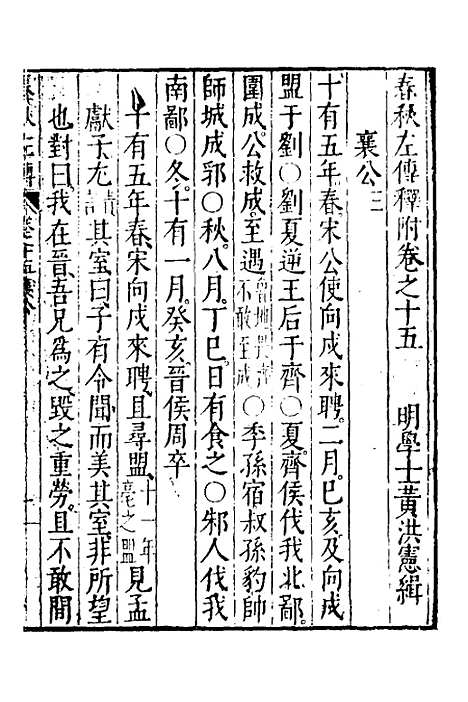 春秋左傳釋附卷之十五　明學士黃洪憲緝
襄公三
十有五年春宋公使向戌來聘二月己亥及向戌
盟于劉○劉夏逆王后于齊○夏齊侯伐我北鄙
圍成公救成至遇不敢至成○季孫宿叔孫豹帥
師城成郛○秋八月丁巳日有食之○邾人伐我
南鄙○冬十有一月癸亥晉侯周卒
十有五年春宋向戌來聘且尋盟十一年亳之盟見孟
獻子尤其室曰子有令聞而美其室非所望
也對曰我在晉吾兄為之毀之重勞且不敢間